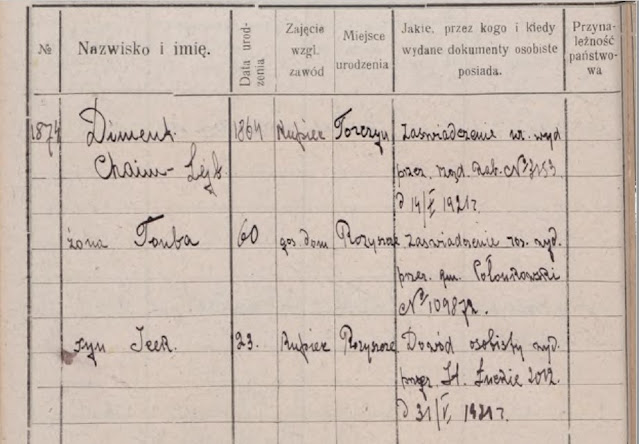 №
Nazwisko i imię.
Data urod-
zenia
Zajęcie
wzgl.
zawód
Miejsce
urodzenia
Jakie, przez kogo i kiedy
wydane dokumenty osobiste
posiada.
Przyna-
leżność
państwo-
wa
1874
Diment
Chaim-Lejb
1864
Kupiec
Torczyn
zaświadczenie
przez
№ 3153
d 14/V 1921 r.
żona Touba
60
gos. dom
Rożyszcze
zaświadczenie ros. wyd.
przez gm.
№ 10987
syn Icek.
23.
Kupiec
Rożyszcze
Dowód osobisty wyd.
przez St. Łuckie 2012.
d 31/V, 1921 r.